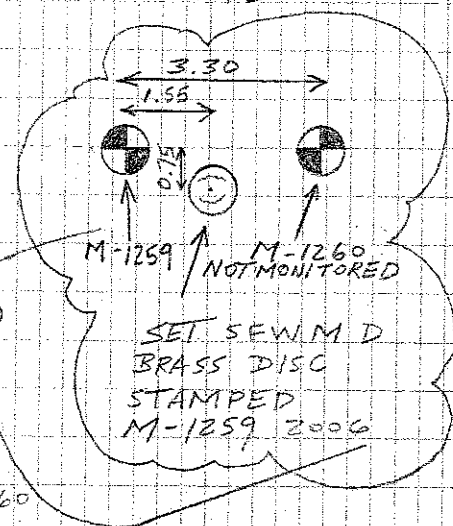 3.30
1.55
0.75
M-1259
M-1260
NOT MONITORED
SET SFWMD
BRASS DISC
STAMPED
M-1259 2006
60